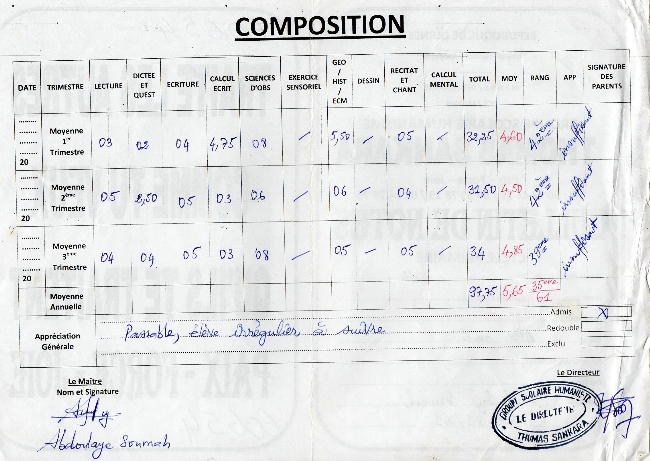 COMPOSITION
DATE TRIMESTRE LECTURE DICTEE ET QUEST ECRITURE CALCUL ECRIT SCIENCES D'OBS EXERCICE SENSORIEL GEO / HIST / ECM DESSIN RECITAT ET CHANT CALCUL MENTAL TOTAL MOY RANG APP SIGNATURE DES PARENTS
20 Moyenne 1er Trimestre 03 02 04 4,75 08 / 5,50 / 05 / 32,25 4,60 42ème insuffisant
20 Moyenne 2ème Trimestre 05 2,50 05 03 06 / 06 / 04 / 31,50 4,50 42ème insuffisant
20 Moyenne 3ème Trimestre 04 04 05 03 08 / 05 / 05 / 34 4,85 39ème insuffisant
Moyenne Annuelle 37,75 5,65 35ème/61
Appréciation Générale Passable, élève irrégulier, à suivre
Admis X
Redouble
Exclu
Le Maître
Nom et Signature
Abdoulaye Soumah
Le Directeur
GROUPE SCOLAIRE HUMANISTE
LE DIRECTEUR
THOMAS SANKARA